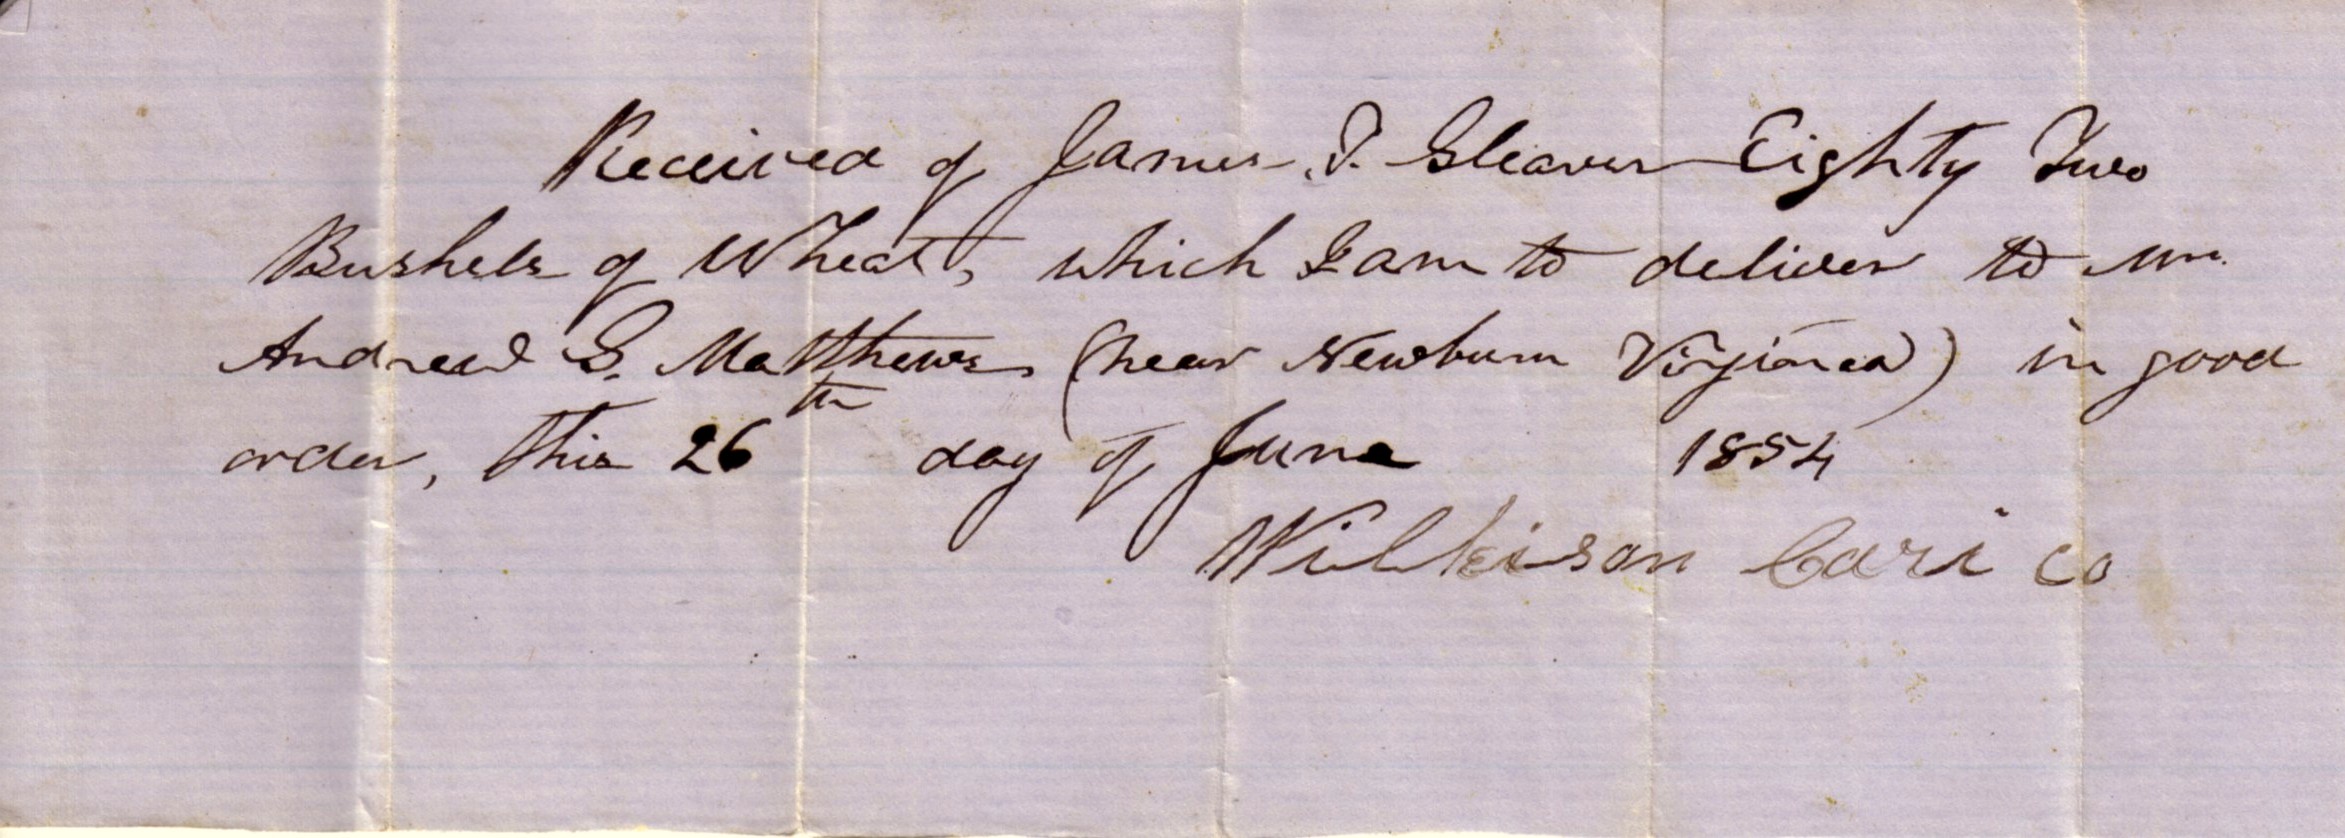 Received of James T. Gleaves Eighty Two
Bushels of Wheat, which I am to deliver to Mr.
Andrew S. Matthews (near Newburn Virginia) in good
order, this 26th day of June 1854
Wilkeison Cari co